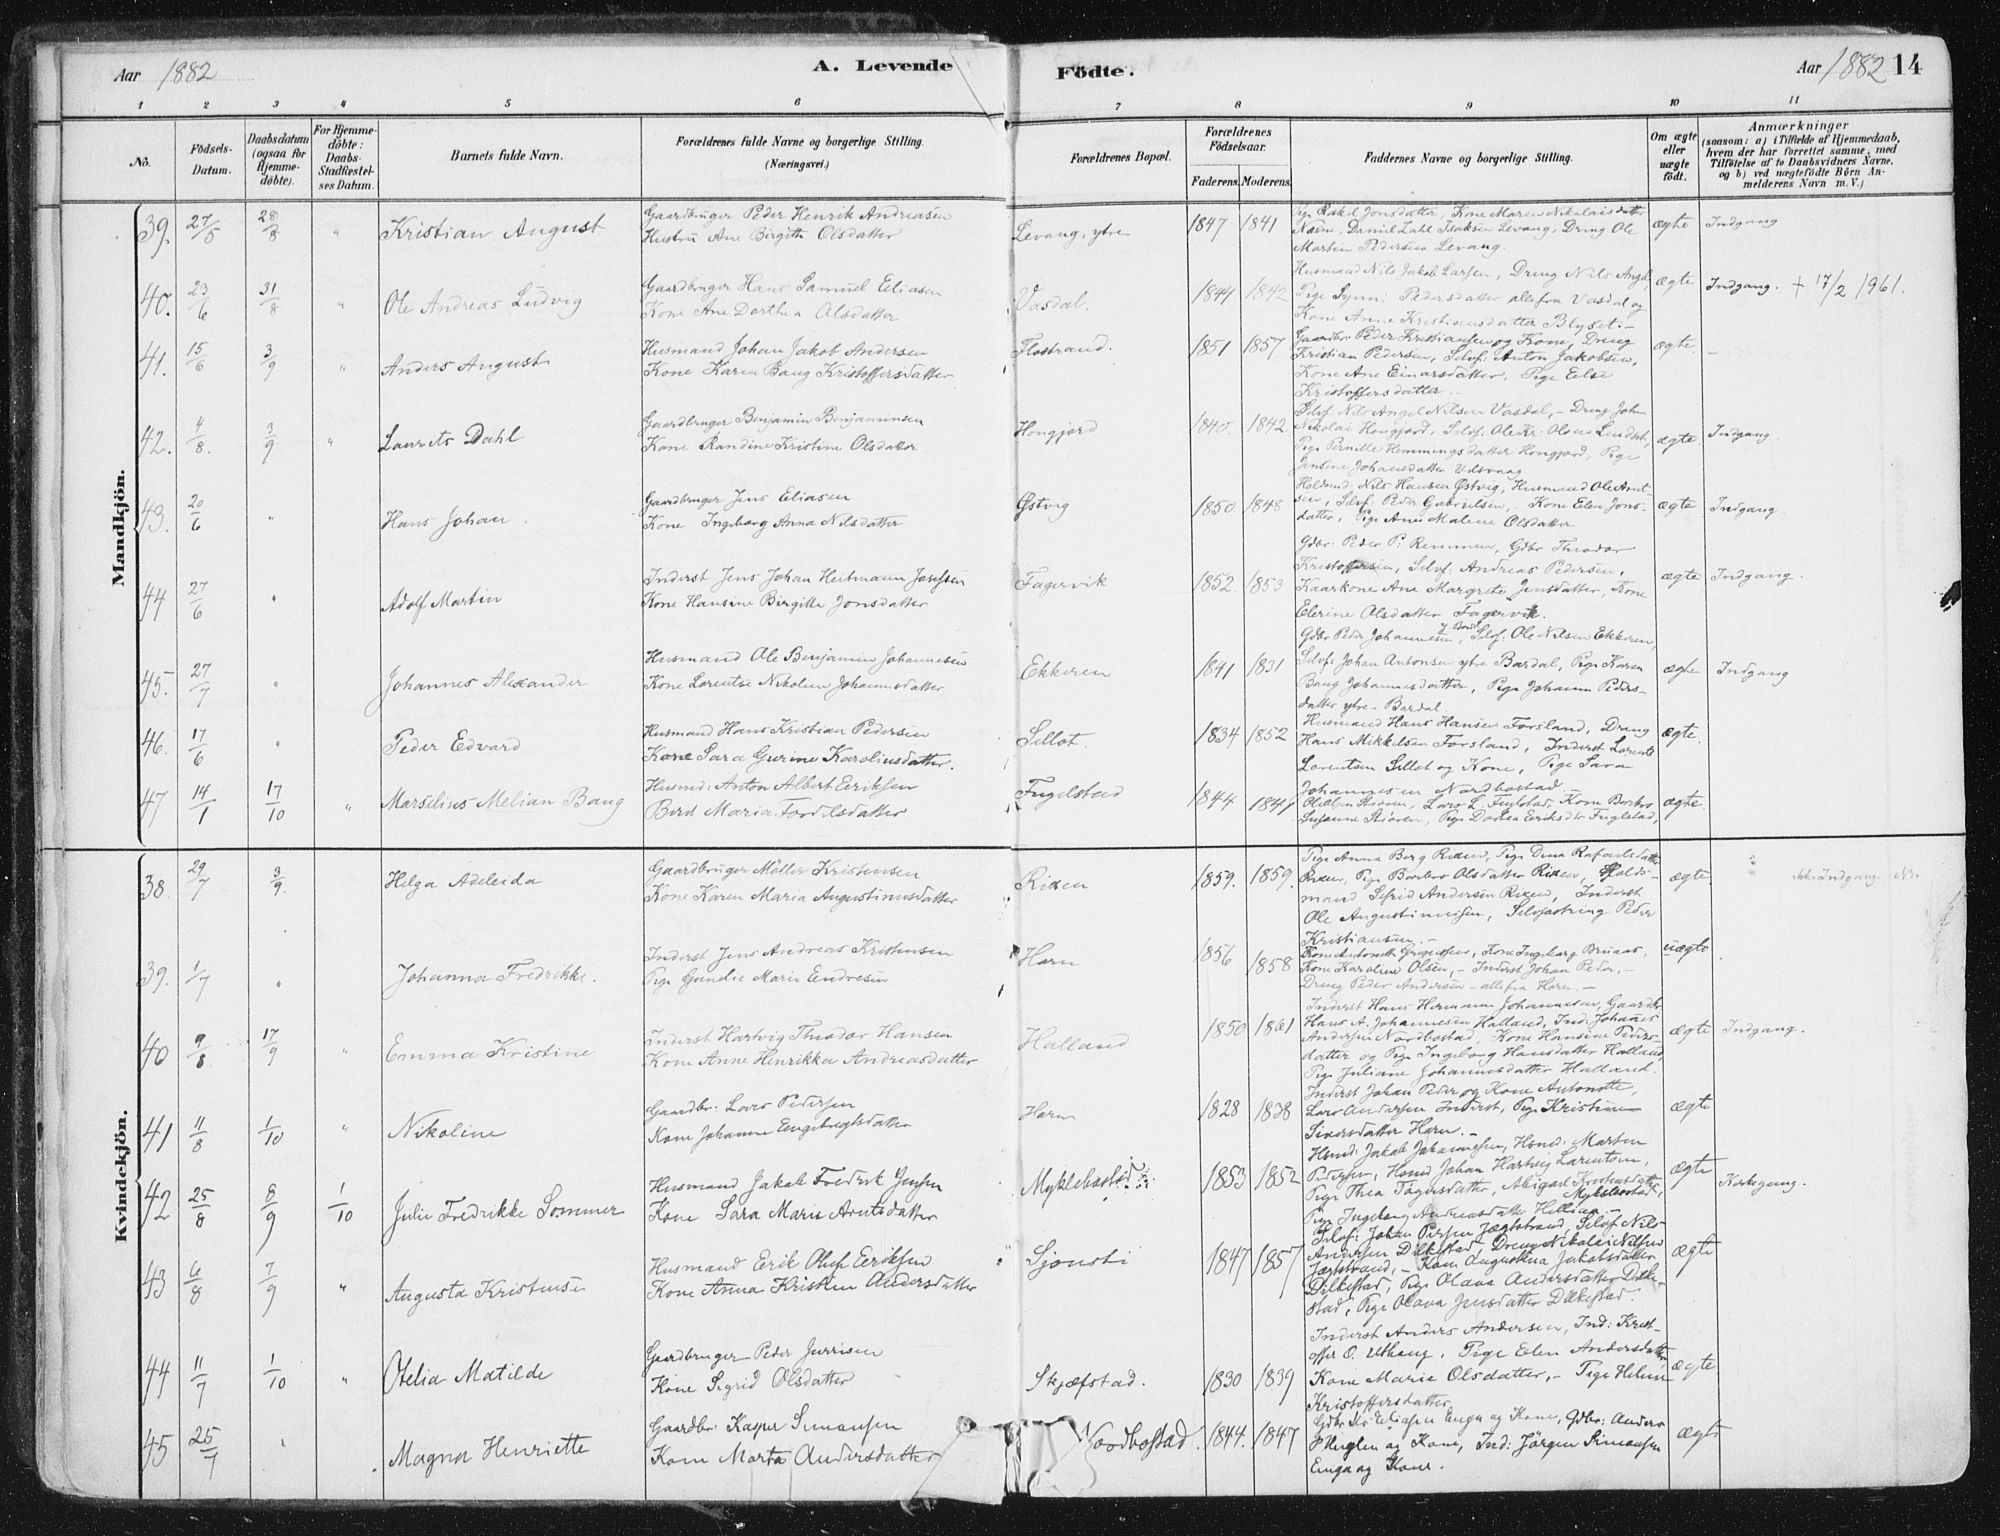 Aar 1882
A. Levende Födte.
Aar 1882 14
1 2 3 4 5 6 7 8 9 10 11
No.
Födsels-Datum.
Daabsdatum (ogsaa for Hjemme-döbte).
For Hjemme-döbte: Daabs-Stadfæstel-ses Datum.
Barnets fulde Navn.
Forældrenes fulde Navne og borgerlige Stilling.
(Næringsvei.)
Forældrenes Bopæl.
Forældrenes Födselsaar.
Faderens. Moderens.
Faddernes Navne og borgerlige Stilling.
Om ægte eller uægte födt.
Anmærkninger
(saasom: a) i Tilfælde af Hjemmedaab, hvem der har forrettet samme, med Tilföielse af to Daabsvidners Navne, og b) ved uægtefödte Börn An-melderens Navn m. V.)
Mandkjön.
39. 27/5 28/8 " Kristian August
Gaardbruger Peder Henrik Andreasen
Hustru Ane Birgith Olsdatter
Levang, ytre 1847 1841
Pige Rakel Jonsdatter, Kone Maren Nikolaisdatter
Næsne, Daniel Zahl Isaksen Levang, Dreng Ole
Martin Pedersen Levang.
ægte Indgang
40. 23/6 31/8 " Ole Andreas Ludvig
Gaardbruger Hans Samuel Eliasen
Kone Ane Dorthea Olsdatter
Vasdal. 1844 1842
Husmand Nils Jakob Larsen, Dreng Nils Angel,
Pige Synni Pedersdatter alle fra Vasdal og
Kone Anne Kristiansdatter Blyset.-
ægte Indgang. + 17/2 1961.
41. 15/6 3/9 " Anders August
Husmand Johan Jakob Andersen
Kone Karen Baug Kristoffersdatter
Flostrand. 1851 1857
Gaardbr Peder Kristiansen og Kone, Dreng
Kristian Pedersen, Selvf: Anton Jakobsen,
Kone Ane Einarsdatter, Pige Else
Kristoffersdatter.-
ægte. -
42. 4/8. 3/9 " Laurits Dahl
Gaardbruger Benjamin Benjaminsen
Kone Randine Kristine Olsdatter
Hongjord 1840. 1842
Selvf: Nils Angel Nilsen Vasdal, - Dreng Johan
Nikolai Hongjord, Selvf: Ole Kr: Olsen Lindset,
Pige Pernille Hemmingsdatter Hongjord, Pige
Jensine Johansdatter Udsvaag
ægte Indgang.
43. 20/6 " Hans Johan.
Gaardbruger Jens Eliasen
Kone Ingeborg Anna Nilsdatter
Østvig 1850 1848
Holdsmd: Nils Hansen Østvig, Husmand Ole Arnt-
sen, Selvf: Peder Gabrielsen, Kone Elen Jons-
datter, Pige Ane Malene Olsdatter
ægte Indgang.
44 27/6 " Adolf Martin
Inderst Jens Johan Heitmann Josefsen
Kone Hansine Birgitte Jonsdatter
Fagervik 1852. 1853
Gdbr: Peder P: Remmen, Gdbr Theodor
Kristoffersen, Selvf: Andreas Pedersen,
Kaarkone Ane Margrete Jensdatter, Kone
Elerine Olsdatter Fagervik.
ægte Indgang.
45. 27/7 " Johannes Alexander
Husmand Ole Benjamin Johannesen
Kone Lorentse Nikoline Johannsdatter
Ekkeren 1841 1831
Gdbr Peder Johannesen y. Bardal, Selvf: Ole Nilsen Ekkeren,
Selvf: Johan Antonsen ytre Bardal, Pige Karen
Baug Johannesdatter, Pige Johanna Peders-
datter ytre Bardal.
ægte Indgang
46. 17/6 " Peder Edvard
Husmand Hans Kristian Pedersen
Kone Sara Gurine Karoliusdatter.
Sellot. 1834 1852
Husmand Hans Hansen Forsland, Dreng
Hans Mikkelsen Forsland, Inderst Lorents
Lorentsen Sellot og Kone, Pige Sara
Johannesen Nordbostad
ægte.
47 14/1 17/10 " Marselius Melian Baug
Husmd: Anton Albert Eriksen
Berit Maria Tordilsdatter
Fugelstad 1844 1849
Lars L. Fuglstad, Kone Barbro
Susanne Stioren, Pige Dortea Eriksdtr Fuglstad,
ægte.
Kvindekjön.
38. 29/7 3/9. Helga Adeleida
Gaardbruger Möller Kristensen
Kone Karen Maria Augustinusdatter
Rixen 1859. 1859.
Pige Anna Berg Rixen, Pige Dina Rafaelsdatter
Rixen, Pige Barbro Olsdatter Rixen, Holds-
mand Sefrid Andersen Rixen, Inderst
Ole Augustinusen, Selvfostring Peder
Kristiansen.-
ægte ikke Indgang.
39. 1/7 " Johanna Fredrikke.
Inderst Jens Andreas Kristensen
Pige Gundie Marie Endresen
Horn 1856 1858
Kone Antonette Gregusen, Kone Ingeborg Bruaas,
Kone Karoline Olsen, - Inderst Johan Peder, -
Dreng Peder Andersen - alle fra Horn.-
uægte.
40 9/8. 17/9 " Emma Kristine
Inderst Hartvig Theodor Hansen
Kone Anne Henrikka Andreasdatter
Halland 1850 1861
Inderst Hans Hermann Johannesen, Gaardbr
Hans A. Johannesen Halland, Ind: Johannes
Andersen Nordbostad, Kone Hansine Peders-
datter og Pige Ingeborg Hansdatter Halland,
Pige Juliane Johannesdatter Halland.
ægte Indgang.
41 11/8 1/10 " Nikoline
Gaardbr: Lars Pedersen
Kone Johanne Engebregtsdatter
Horn 1828 1838
Inderst Johan Peder og Kone Antonette,
Lars Andersen Inderst, Pige Kristine
Siversdatter Horn.-
ægte
42 25/8 8/9 1/10 Julie Fredrikke Sommer
Husmand Jakob Fredrik Jensen
Kone Sara Marie Arntsdatter
Myklebostad 1853 1852
Hsmd: Jakob Johannesen, Hsmd: Marten
Pedersen, Hsmd Johan Hartvig Larentsen,
Pige Thea Tagersdatter, Abigael Knutsdatter Myklebostad,
Pige Ingeborg Andreasdatter Hellian.-
ægte Kirkegang.
43 6/8 7/9 " Augusta Kristense
Husmand Erik Oluf Eriksen
Kone Anna Kristine Andersdatter
Sjonsti 1847 1857
Selvf: Johan Petersen Jægtstrand, Selvf Nils
Andersen Dilkestad, Dreng Nikolai Nilsen
Jægtstrand, - Kone Augustina Jakobsdatter
Dilkestad, Pige Olava Andersdatter Dilke-
stad, Pige Olava Jensdatter Dilkestad.
ægte
44 11/7 1/10 " Otelia Matilde
Gaardbruger Peder Jurrisen
Kone Sigrid Olsdatter
Skjæfstad. 1830 1839
Inderst Anders Andersen, Ind: Krist-
offer O. Uthaug, Pige Elen Andersdatter,
Kone Marie Olsdatter, - Pige Helene
Kristoffersdatter
ægte
45 25/7 " Magna Henriette
Gaardbr: Kasper Simonsen
Kone Marta Andersdatter
Nordbostad. 1844. 1847
Eliasen Enga og Kone, Gdbr: Anders
og Kone, Ind: Jörgen Simonsen
Enga og Kone.
ægte